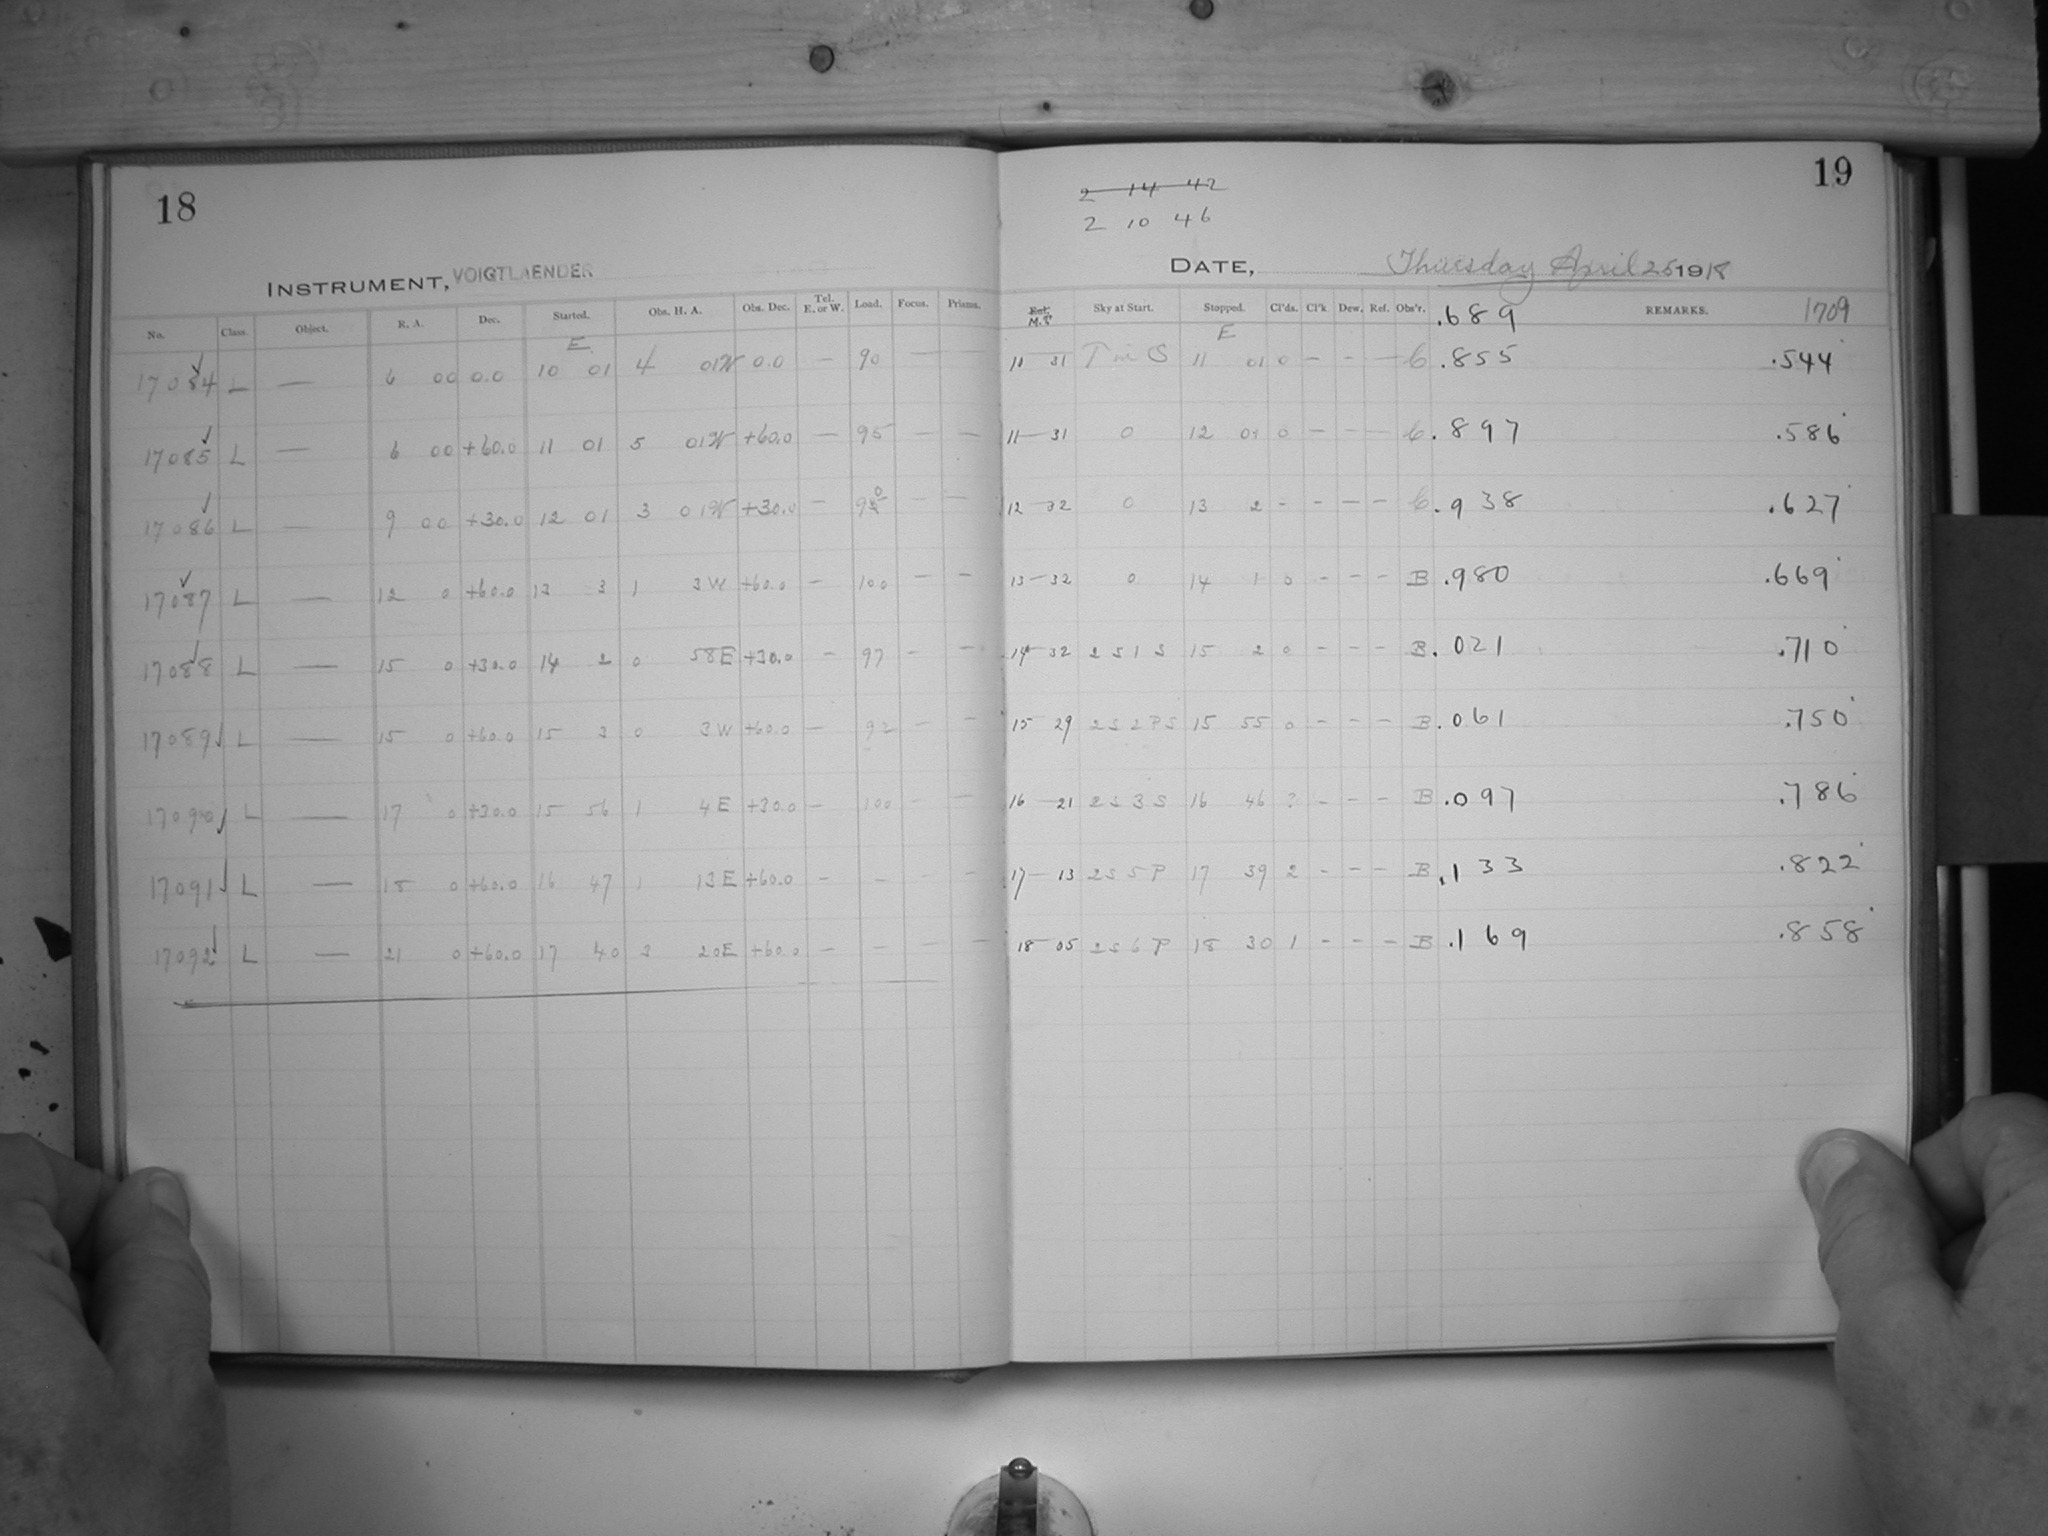 18
INSTRUMENT, VOIGTLAENDER
No. Class. Object. R. A. Dec. Started. Obs. H. A. Obs. Dec. Tel. E. or W. Load. Focus. Prisms.
E
17084 L — 6 00 0.0 10 01 4 01W 0.0 — 90 — —
17085 L — 6 00 +60.0 11 01 5 01W +60.0 — 95 — —
17086 L — 9 00 +30.0 12 01 3 01W +30.0 — — —
17087 L — 12 0 +60.0 13 3 1 3W +60.0 — 100 — —
17088 L — 15 0 +30.0 14 2 0 58E +30.0 — 97 — —
17089 L — 15 0 +60.0 15 3 0 3W +60.0 — 92 — —
17090 L — 17 0 +30.0 15 56 1 4E +30.0 — 100 — —
17091 L — 18 0 +60.0 16 47 1 13E +60.0 — — — —
17092 L — 21 0 +60.0 17 40 3 20E +60.0 — — — —
19
2 14 42
2 10 46
DATE, Thursday April 25 1918
M.T. Sky at Start. Stopped. Cl'ds. Cl'k Dew. Ref. Obs'r. .689 REMARKS. 1709
E
10 31 11 01 0 — — — C .855 .544
11—31 0 12 01 0 — — — C .897 .586
12—32 0 13 2 - — — — C .938 .627
13—32 0 14 1 0 — — — B .980 .669
14—32 2 S 1 S 15 2 0 — — — B .021 .710
15 29 2 S 2 P S 15 55 0 — — — B .061 .750
16—21 2 S 3 S 16 46 ? — — — B .097 .786
17—13 2 S 5 P 17 39 2 — — — B .133 .822
18—05 2 S 6 P 18 30 1 — — — B .169 .858